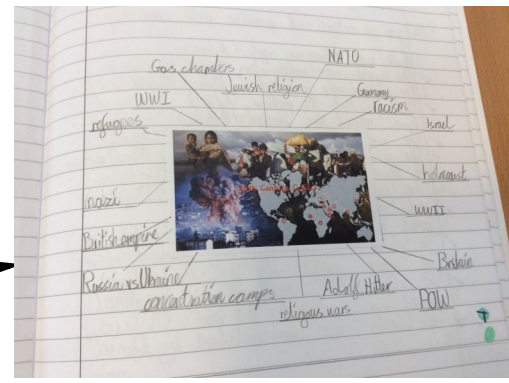 NATO
Gas chambers
Jewish religion
Germany
WWI
racism
refugees
Israel
holocaust
nazi
WWII
British empire
Britain
Russia vs Ukraine
concentration camps
Adolf Hitler
POW
religious wars